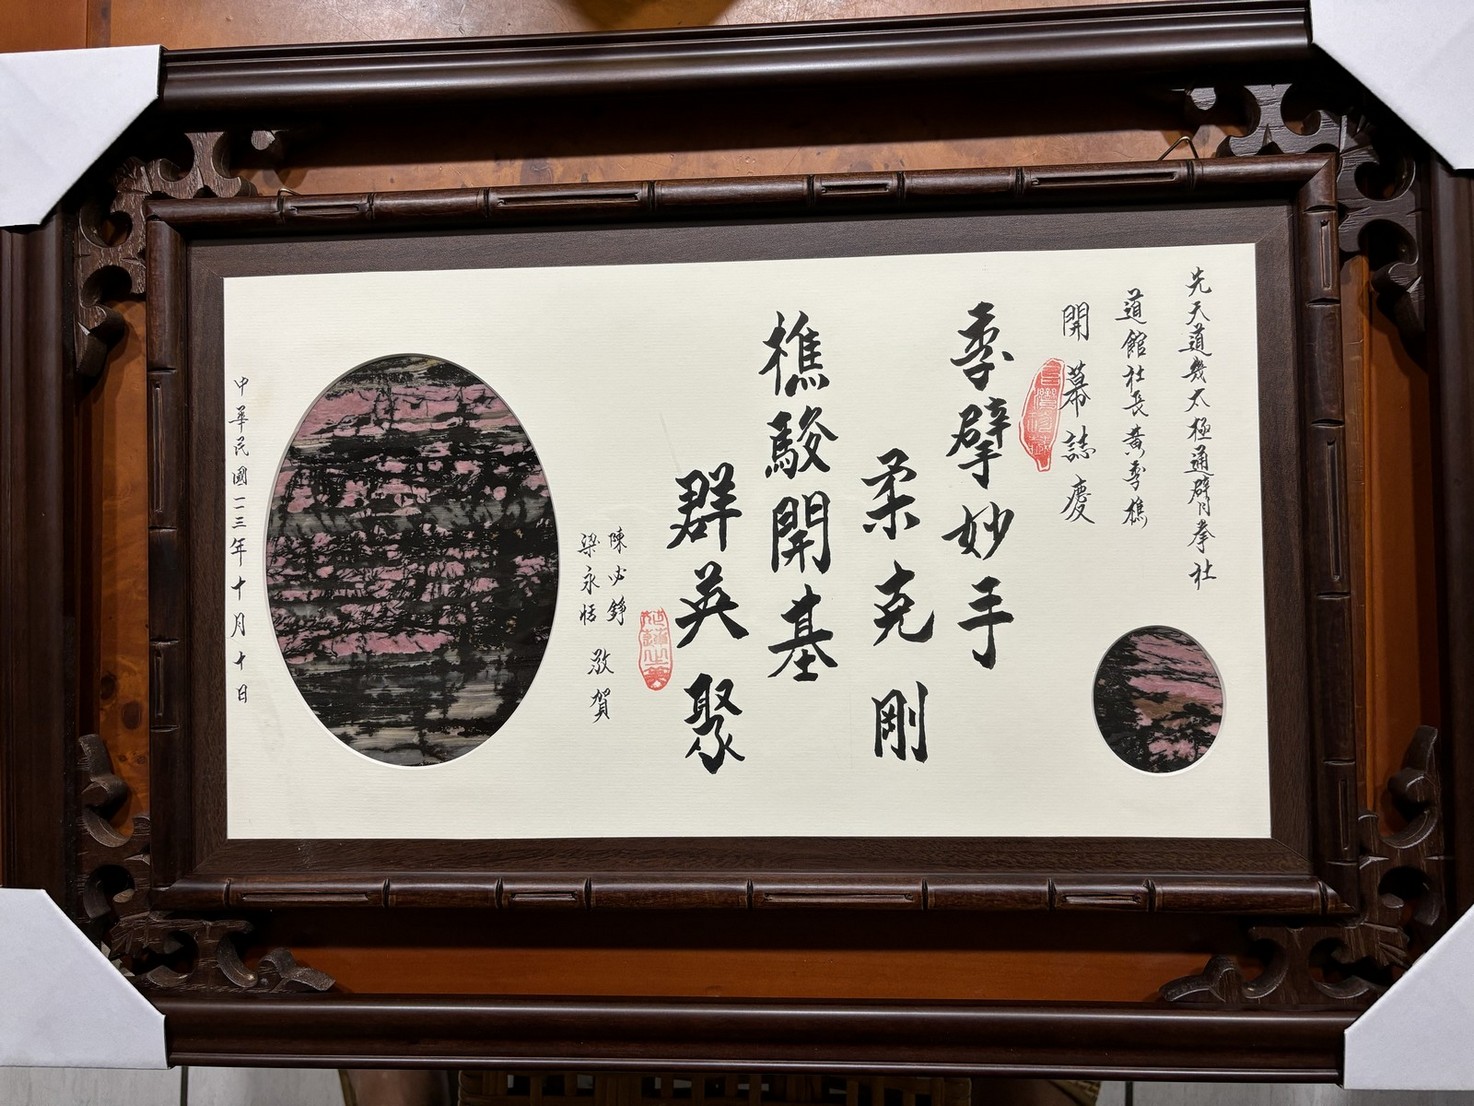 先天道幾太極通臂拳社
道館社長黃季樵
開幕誌慶
季擘妙手
柔克剛
樵駿開基
群英聚
陳必錚
梁永恬
敬賀
中華民國一一三年十月十日